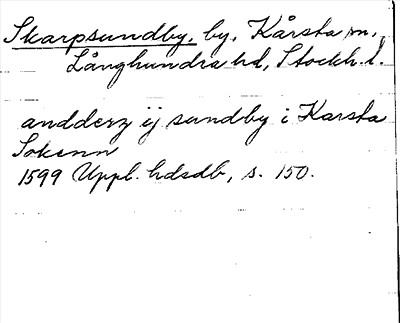 Skarpsundby, by, Kårsta sn,
Långhundra hd, Stockh. l.
andderz ij sundby i Karsta
Sokenn
1599 Uppl. hdsdb, s. 150.